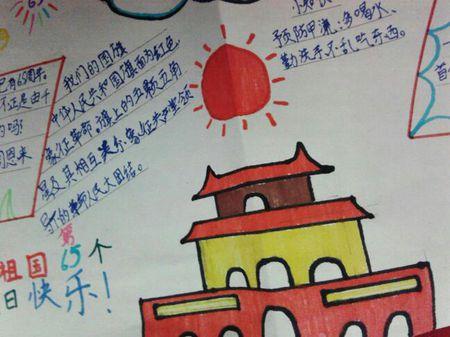 65
已有65周年。
不正是由千
的吗
周恩来
我们的国旗
中华人民共和国旗面为红色
象征革命,旗上的五颗五角
星及其相互关系象征共产党领
导下的革命人民大团结。
小知识
预防甲流:多喝水、
勤洗手不乱吃东西。
首
祖国第65个
日快乐!